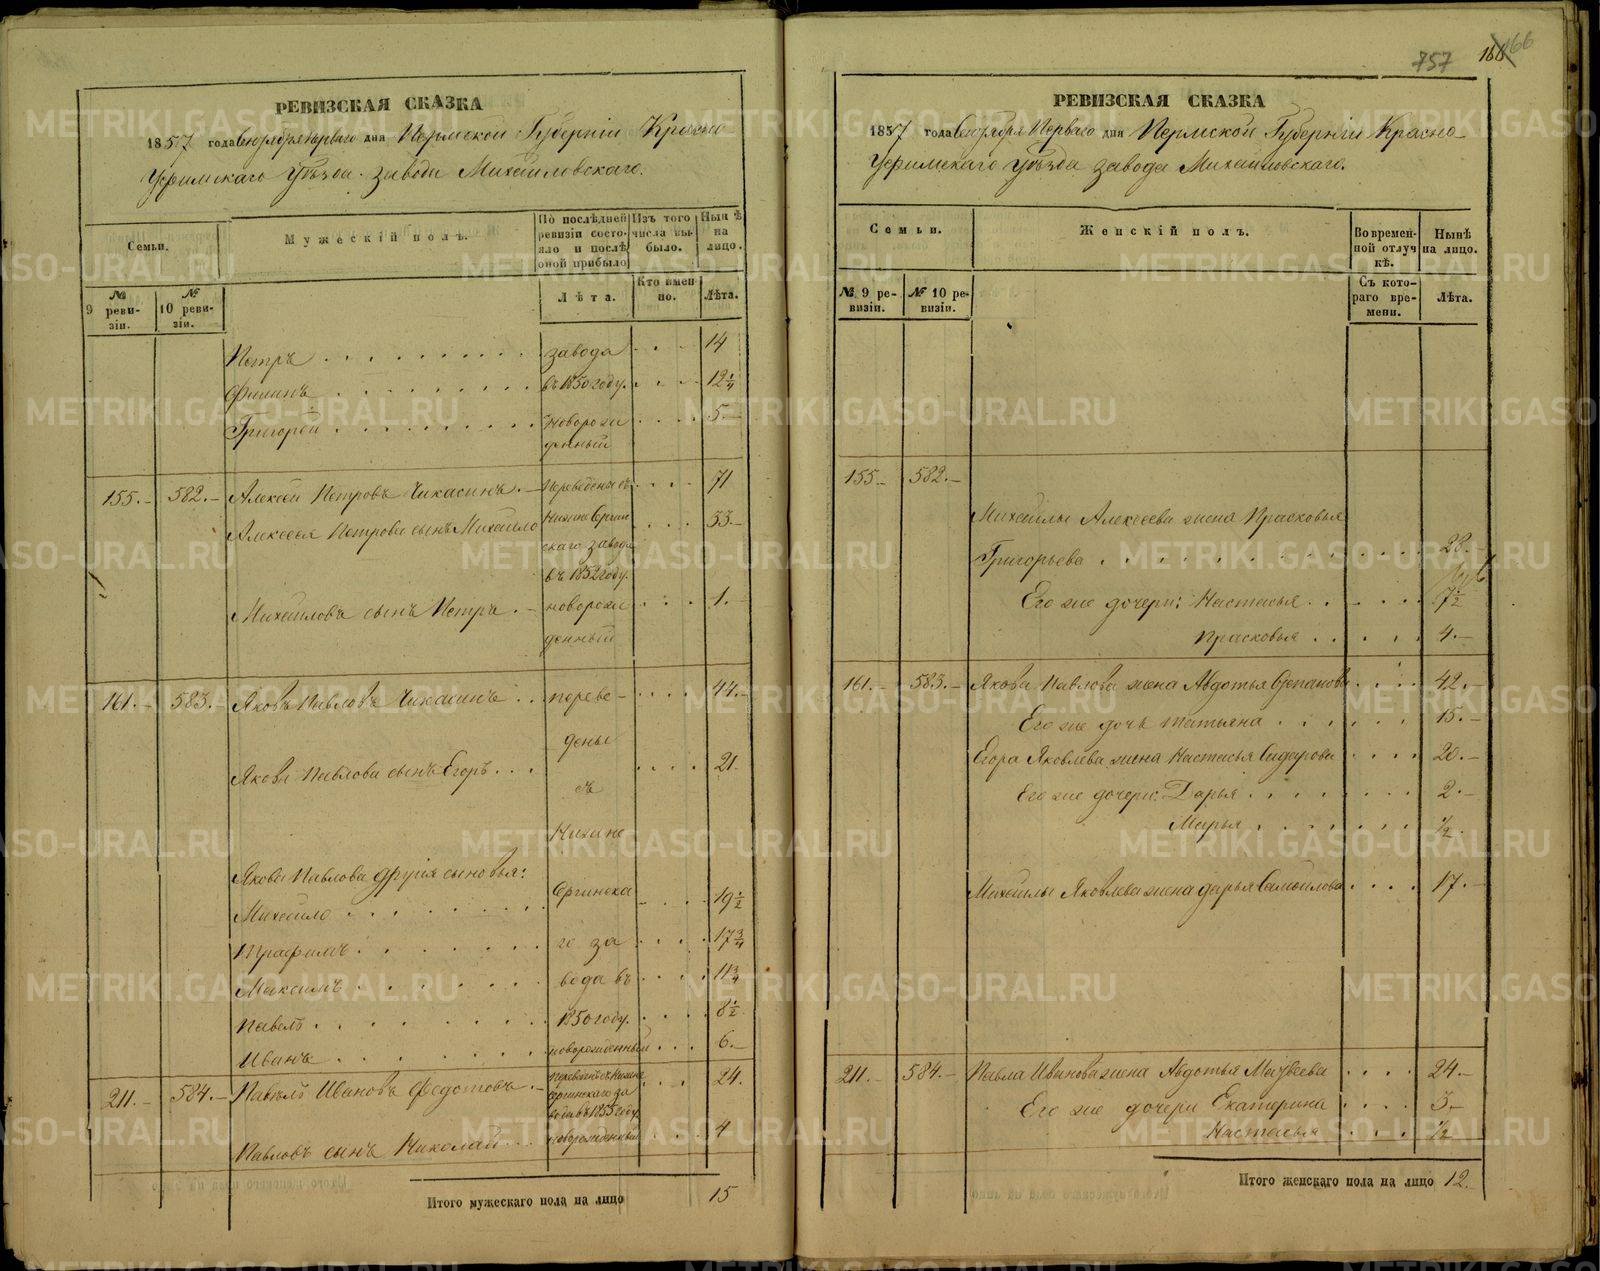 РЕВИЗСКАЯ СКАЗКА
1857 года Сентября перваго дня Пермской Губерніи Красно
Уфимскаго Уѣзда завода Михайловскаго.
Семьи.
Мужескій полъ.
По послѣдней ревизіи состояло и послѣ оной прибыло
Изъ того числа выбыло.
Нынѣ на лицо.
№ 9 ревизіи.
№ 10 ревизіи.
Лѣта.
Кто именно.
Лѣта.
Петръ завода 14
Филипъ въ 1850 году. 12 1/4
Григорей новорож 5
денный
155. 582. Алексей Петровъ Чикасинъ. переведены съ 71
Алексея Петрова сынъ Михайло Нижне Сергин 33.
скаго завода
въ 1852 году.
Михайловъ сынъ Петръ новорож 1.
денный
161. 583. Яковъ Павловъ Чикасинъ переве 44.
дены
Якова Павлова сынъ Егоръ 21
съ
Нижне
Якова Павлова другія сыновья:
Сергинска
Михайло 19 1/2
Трафимъ го за 17 3/4
Максимъ вода въ 11 3/4
Павелъ 1850 году. 8 1/2
Иванъ новорожденный 6.
211. 584. Павелъ Ивановъ Федотовъ переведенъ съ Нижне 24.
Сергинскаго за
вода въ 1855 году
Павловъ сынъ Николай новорожденный 4
Итого мужескаго пола на лицо 15
757 166
РЕВИЗСКАЯ СКАЗКА
1857 года Сентября Перваго дня Пермской Губерніи Красно
Уфимскаго Уѣзда завода Михайловскаго.
Семьи.
Женскій полъ.
Во временной отлучкѣ.
Нынѣ на лицо.
№ 9 ревизіи.
№ 10 ревизіи.
Съ котораго времени.
Лѣта.
155 582.
Михайлы Алексеева жена Прасковья
Григорьева 28.
Его же дочери: Настасья 7 1/2
Прасковья 4.
161. 583. Якова Павлова жена Авдотья Степанова 42.
Его же дочь Татьяна 15.
Егора Яковлева жена Настасья Сидорова 20.
Его же дочери: Дарья 2.
Марья 1/2.
Михайлы Яковлева жена Дарья Самойлова 17.
211. 584. Павла Иванова жена Авдотья Матвеева 24.
Его же дочери Екатерина 3.
Настасья 1/2
Итого женскаго пола на лицо 12.
METRIKI.GASO-URAL.RU